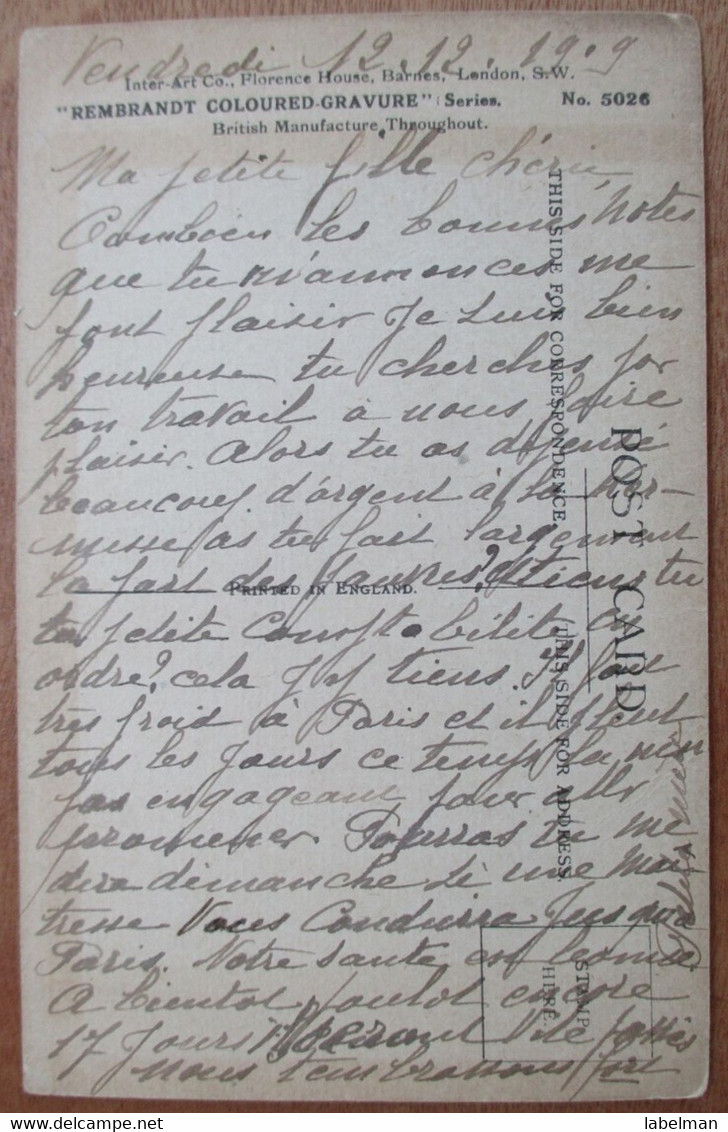 Vendredi 12.12.1919
Inter-Art Co., Florence House, Barnes, London, S.W.
"REMBRANDT COLOURED-GRAVURE" Series. No. 5026
British Manufacture Throughout.
Ma petite fille chérie
Combien les bonnes notes
que tu m'annonces me
font plaisir je suis bien
heureuse tu cherches par
ton travail à nous faire
plaisir. Alors tu as dépensé
beaucoup d'argent à la ker-
messe as tu fait largement
la part des pauvres? tiens tu
ta petite comptabilité en
ordre? cela j'y tiens. Il fait
très froid à Paris et il pleut
tous les jours ce temps là n'est
pas engageant pour aller
promener. Pourras tu me
dire dimanche si une maî
tresse vous conduira jusqu'à
Paris. Notre santé est bonne
A bientôt poulot encore
17 jours seront vite passés
Nous t'embrassons fort
PRINTED IN ENGLAND.
POST CARD
THIS SIDE FOR CORRESPONDENCE.
(THIS SIDE FOR ADDRESS.
STAMP
HERE.
© labelman www.delcampe.net